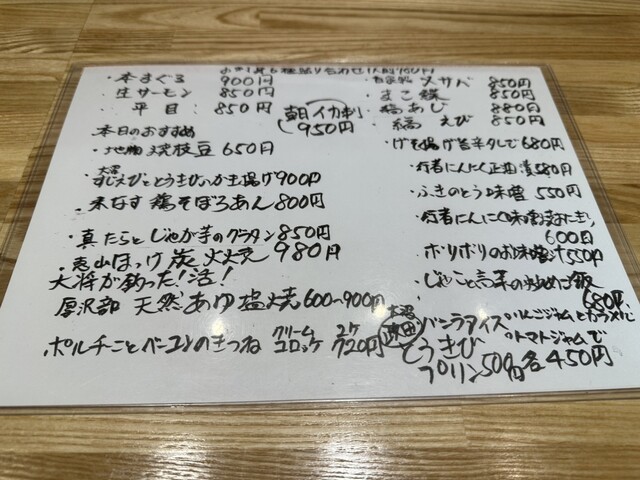 お刺身6種盛り合わせ1人前980円
・本まぐろ 900円
・生サーモン 850円
・平目 850円
朝イカ刺 950円
本日のおすすめ
・地物 焼枝豆 650円
・大沼 すじえびととうきびのかき揚げ 900円
・米なす 鶏そぼろあん 800円
・真たらとじゃが芋のグラタン 850円
・恵山ほっけ 炭火焼 980円
大将が釣った!活!
厚沢部 天然あゆ塩焼 600〜900円
ポルチーニとベーコンのきつね クリームコロッケ 2ケ 720円
・自家製 〆サバ 850円
・まこ鰈 850円
・縞あじ 880円
・縞えび 850円
・げそ揚げ甘辛タレで 680円
・行者にんにく正油漬 580円
・ふきのとう味噌 550円
・行者にんにく味噌おにぎり 600円
・ボリボリのお味噌汁 550円
・じゃこと高菜の炒めご飯 680円
バニラアイス
りんごジャムとカラメルに
トマトジャムで
大沼
とうきび
プリン 500円 各450円